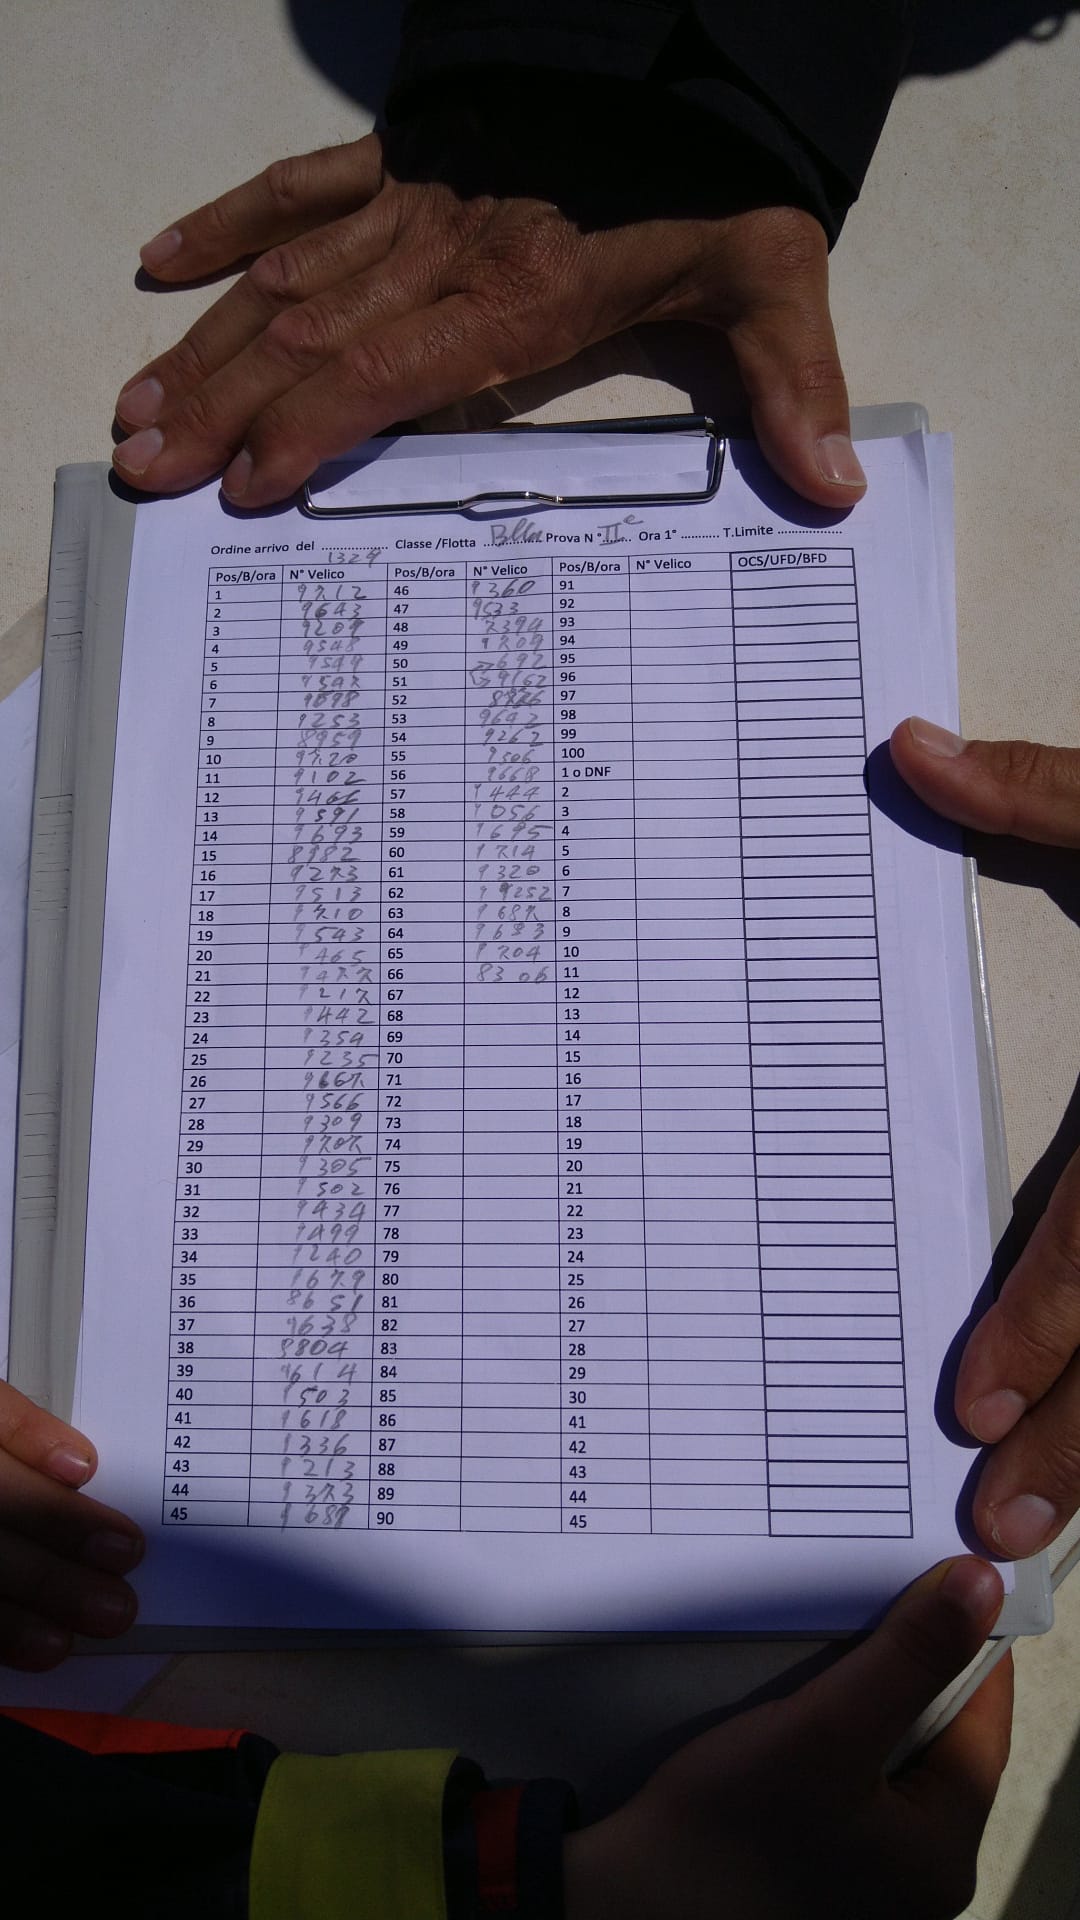 Ordine arrivo del .................. Classe /Flotta ............... Prova N° II e Ora 1° ........... T.Limite ..................
1324
Pos/B/ora N° Velico Pos/B/ora N° Velico Pos/B/ora N° Velico OCS/UFD/BFD
1 9712 46 9360 91
2 9643 47 9533 92
3 9209 48 7394 93
4 9548 49 9209 94
5 9549 50 7692 95
6 9547 51 9162 96
7 9698 52 97
8 9253 53 9692 98
9 8959 54 9262 99
10 9720 55 9506 100
11 9102 56 9668 1 o DNF
12 9466 57 9444 2
13 9591 58 9056 3
14 9693 59 9695 4
15 8982 60 9714 5
16 9273 61 9320 6
17 9513 62 9252 7
18 9710 63 9687 8
19 9543 64 9693 9
20 9465 65 9204 10
21 9477 66 8306 11
22 9217 67 12
23 9442 68 13
24 9354 69 14
25 9235 70 15
26 9667 71 16
27 9566 72 17
28 9309 73 18
29 9707 74 19
30 9305 75 20
31 9502 76 21
32 9434 77 22
33 9499 78 23
34 9240 79 24
35 9679 80 25
36 8651 81 26
37 9638 82 27
38 8804 83 28
39 9614 84 29
40 9503 85 30
41 9618 86 41
42 9336 87 42
43 9213 88 43
44 9373 89 44
45 9689 90 45